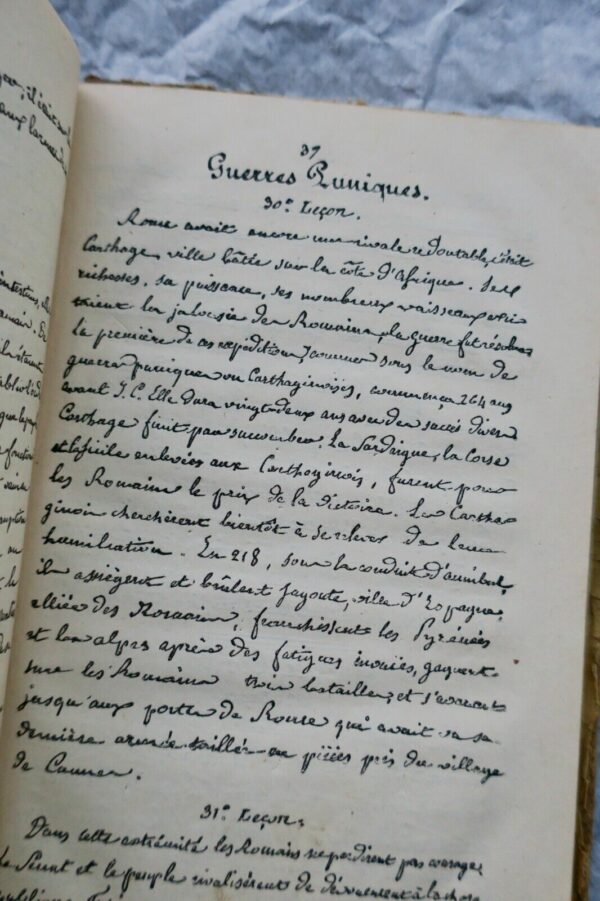 37
Guerres Puniques.
30e Leçon.
Rome avait encore une rivale redoutable, c'était
Carthage, ville bâtie sur la côte d'Afrique. Ses
richesses, sa puissance, ses nombreux vaisseaux exci
taient la jalousie des Romains, la guerre fut résolue
la première de ces expéditions, connues sous le nom de
guerres puniques ou Carthaginoises, commença 264 ans
avant J.C. Elle dura vingt deux ans avec des succès divers
Carthage finit par succomber. La Sardaigne, la Corse
et la Sicile enlevées aux Carthaginois, furent pour
les Romains le prix de la victoire. Les Cartha
ginois cherchèrent bientôt à se relever de leur
humiliation. En 218, sous la conduite d'annibal,
ils assiègent et brûlent Sagonte, ville d'Espagne,
alliée des Romains, franchissent les Pyrénées
et les alpes après des fatigues inouïes, gagnent
sur les Romains trois batailles, et s'avancent
jusqu'aux portes de Rome qui avait vu sa
dernière armée taillée en pièces près du village
de Cannes.
31e Leçon.
Dans cette extrémité les Romains ne perdirent pas courage,
Le Sénat et le peuple rivalisèrent de dévouement à la chose